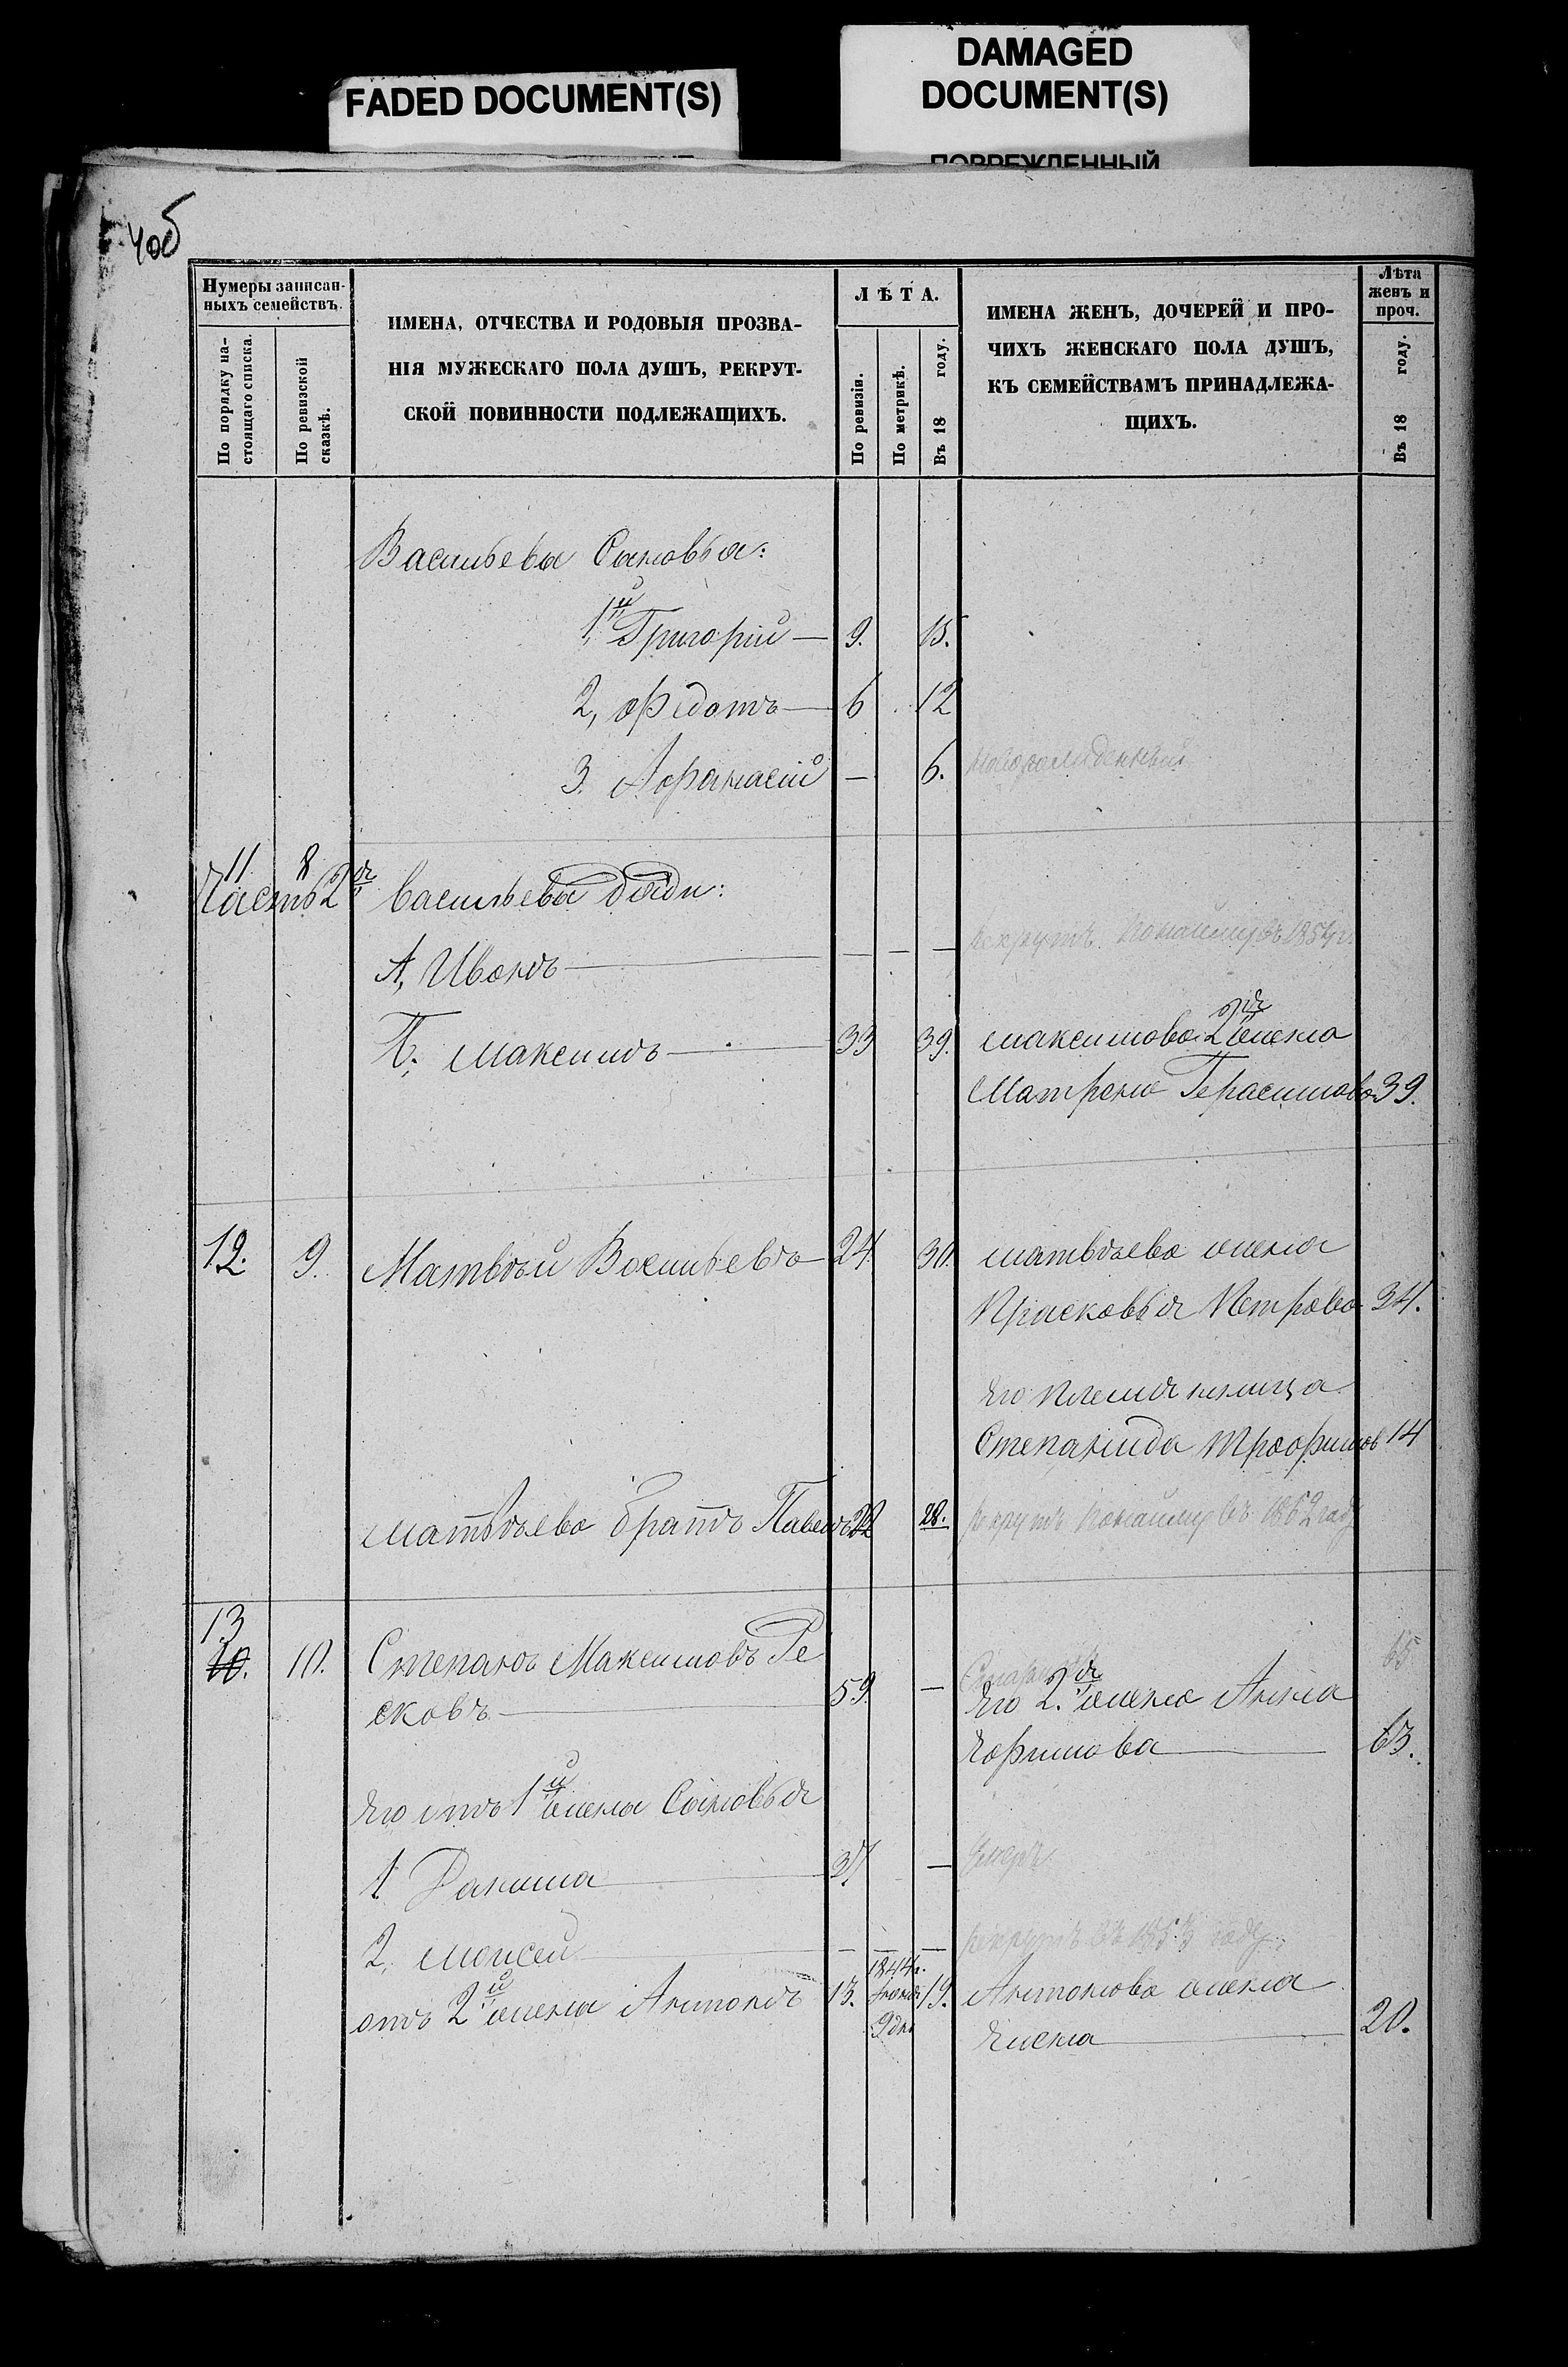 FADED DOCUMENT(S)
DAMAGED
DOCUMENT(S)
ПОВРЕЖДЕННЫЙ
40б
Нумеры записан-
ныхъ семействъ.
По порядку на-
стоящаго списка.
По ревизской
сказкѣ.
ИМЕНА, ОТЧЕСТВА И РОДОВЫЯ ПРОЗВА-
НІЯ МУЖЕСКАГО ПОЛА ДУШЪ, РЕКРУТ-
СКОЙ ПОВИННОСТИ ПОДЛЕЖАЩИХЪ.
ЛѢТА.
По ревизіи.
По метрикѣ.
Въ 18 году.
ИМЕНА ЖЕНЪ, ДОЧЕРЕЙ И ПРО-
ЧИХЪ ЖЕНСКАГО ПОЛА ДУШЪ,
КЪ СЕМЕЙСТВАМЪ ПРИНАДЛЕЖА-
ЩИХЪ.
Лѣта
женъ и
проч.
Въ 18 году.
Васильевы Сыновья:
1й Григорій — 9. 15.
2, Федотъ — 6 12
3. Афанасій — 6. новорожденный
11 8
Часть 2я Васильевы дяди:
А, Иванъ — — — — рекрутъ по найму въ 1854 г.
Б, Максимъ — 33 39. Максимова 2я жена
Матрена Герасимова 39.
12. 9. Матвѣй Васильевъ — 24. 30. Матвѣева жена
Прасковья Петрова 34.
Его племянница
Степанида Трофимов 14
Матвѣева братъ Павелъ 22 28. рекрутъ по найму въ 1862 году
13
10. 10. Степанъ Максимовъ Ге
сковъ — 59. — Старикъ 65
Его 2я жена Анна
Ефимова — 63.
Его отъ 1й жены Сыновья
1. Данила — 31 — умеръ
2, Моисей — — — — рекрутъ въ 1853 году
отъ 2й жены Антонъ 13. 1844 г. 9 дня 19. Антонова жена
Елена — 20.